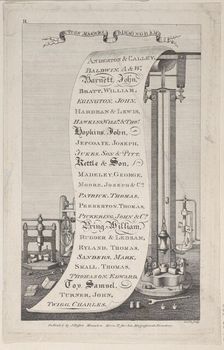 BUTTON MAKERS BIRMINGHAM
ANDERTON & CALLEY,
BALDWIN, A & W.
Barnett, John,
BRATT, WILLIAM,
EDINGTON, JOHN,
HARDMAN & LEWIS,
HAWKINS, WILLM & THOS.
Hopkins, John,
JEFCOATE, JOSEPH,
JUKES, SON & PITT,
Kettle & Son,
MADELEY, GEORGE,
MOORE, JOSEPH & CO.
PATRICK, THOMAS,
PEMBERTON, THOMAS,
PICKERING, JOHN & CO.
Pring, William,
RUDDER & LEDSAM,
RYLAND, THOMAS,
SANDERS, MARK,
SMALL, THOMAS,
THOMASON, EDWARD,
Toy, Samuel,
TURNER, JOHN,
TWIGG, CHARLES,